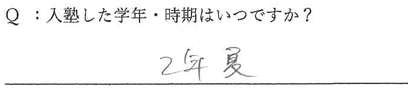 Q ：入塾した学年・時期はいつですか？
2年夏